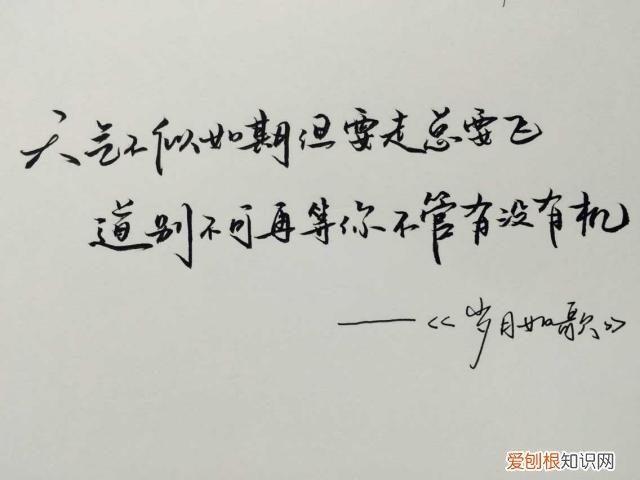 天气不似如期但要走总要飞
道别不可再等你不管有没有机
——《岁月如歌》
爱刨根知识网
www.abgen.com